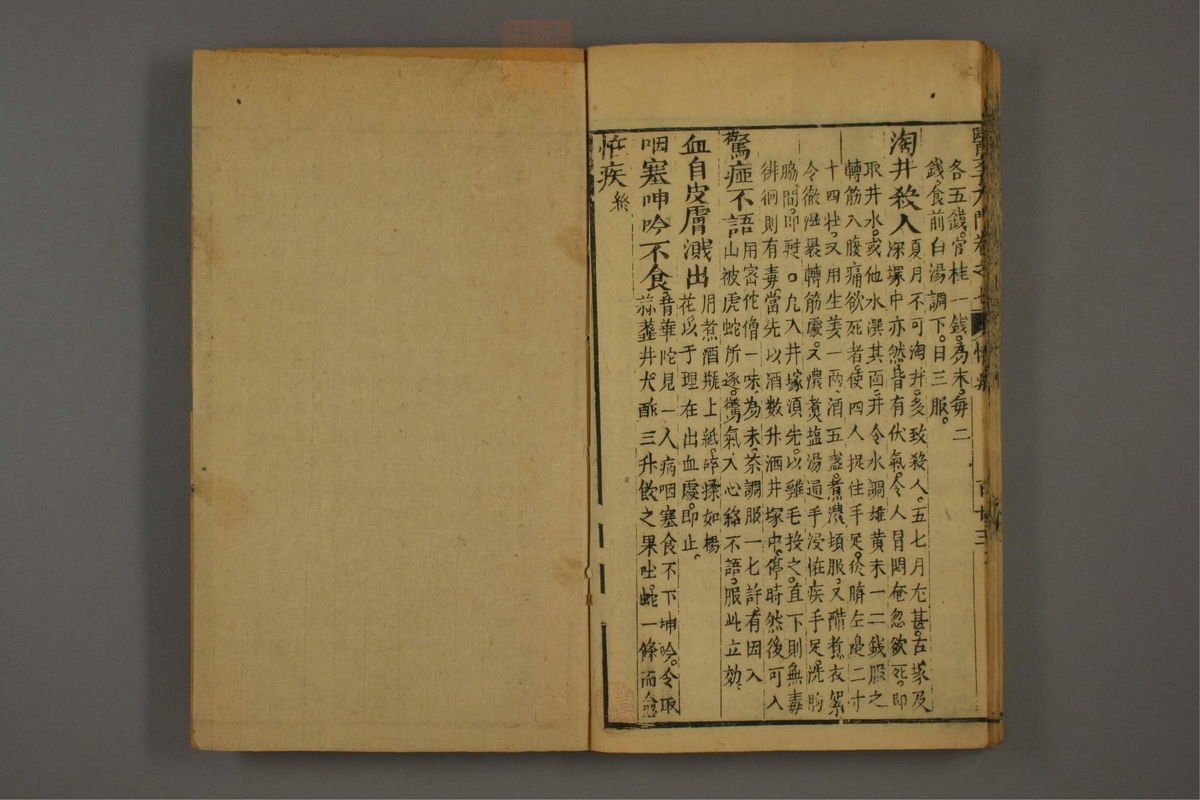 各五錢。官桂一錢。為末。每二
錢。食前白湯調下。日三服。
淘井殺人
夏月不可淘井。多致殺人。五七月尤甚。古塚及
深塚中亦然。皆有伏氣。令人冒悶奄忽欲死。即
取井水。或他水潠其面。井令水調雄黃末一二錢服之
轉筋入腹痛欲死者。使四人捉住手足。於臍左邊二寸
十四壯。又用生姜一兩。酒五盞。煮濃頓服。又醋煮衣絮
令徹濕褁轉筋處。又濃煑塩湯通手浸怪疾手足。洗胸
脇間。即甦。○凢入井塚須先。以雞毛投之。直下則無毒
徘徊則有毒。當先以酒數升洒井塚中。停時然後可入
驚症不語
用密佗僧一味。為末。茶調服一七許。有因入
山被虎蛇所逐。驚氣入心絡不語。服此立効。
血自皮膚濺出
用煮酒瓶上紙。碎揉如楊
花以于理在出血處。即止。
咽塞呻吟不食。
昔華陀見一人病咽塞食不下呻吟。令取
蒜虀井大酢三升飲之果吐。蛇一條而愈
怪疾終